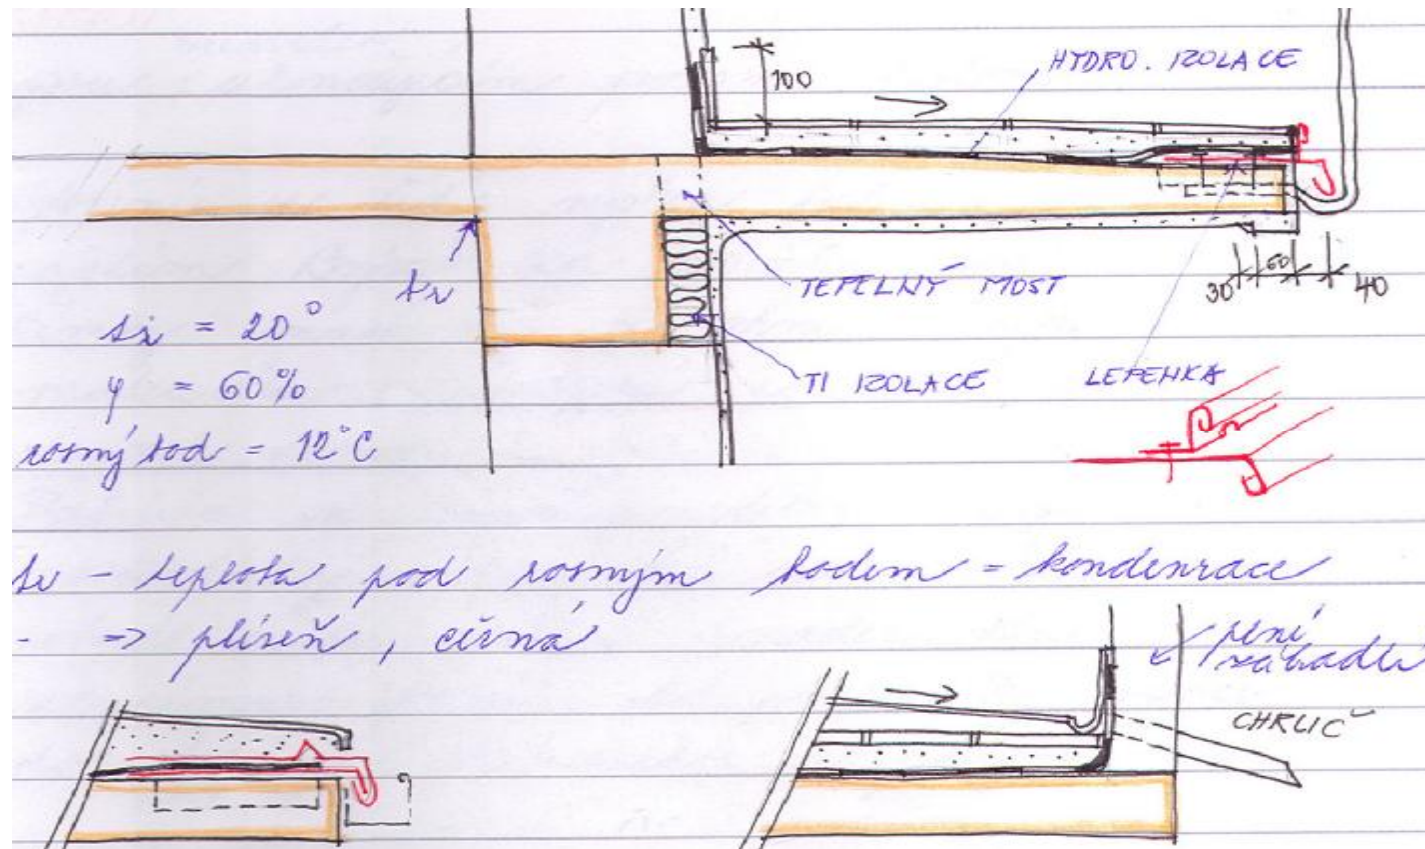 HYDRO. IZOLACE
100
TEPELNÝ MOST
30 60 40
ti = 20°
φ = 60%
rosný bod = 12°C
TI IZOLACE
LEPENKA
- teplota pod rosným bodem = kondenzace
- => plíseň, černá
plní
zábradlí
CHRLIČ